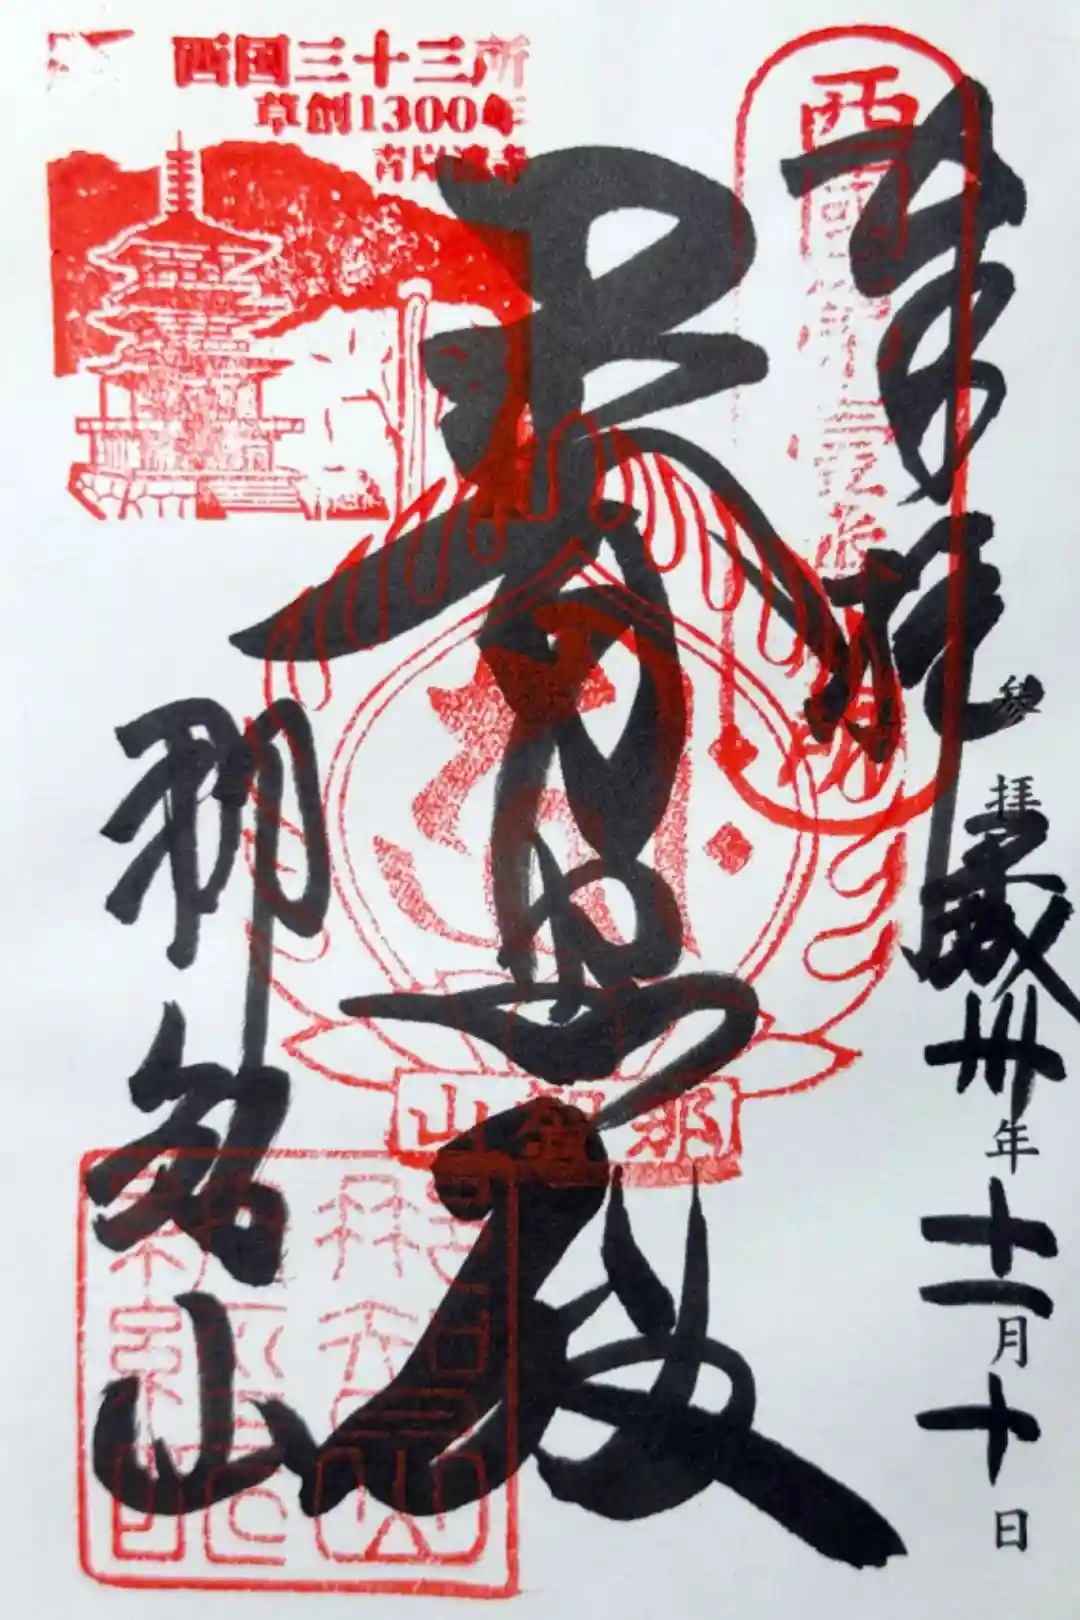 西国三十三所
草創1300年
青岸渡寺
奉拝
參拝平成卅年十一月十日
普照殿
那智山
那智山